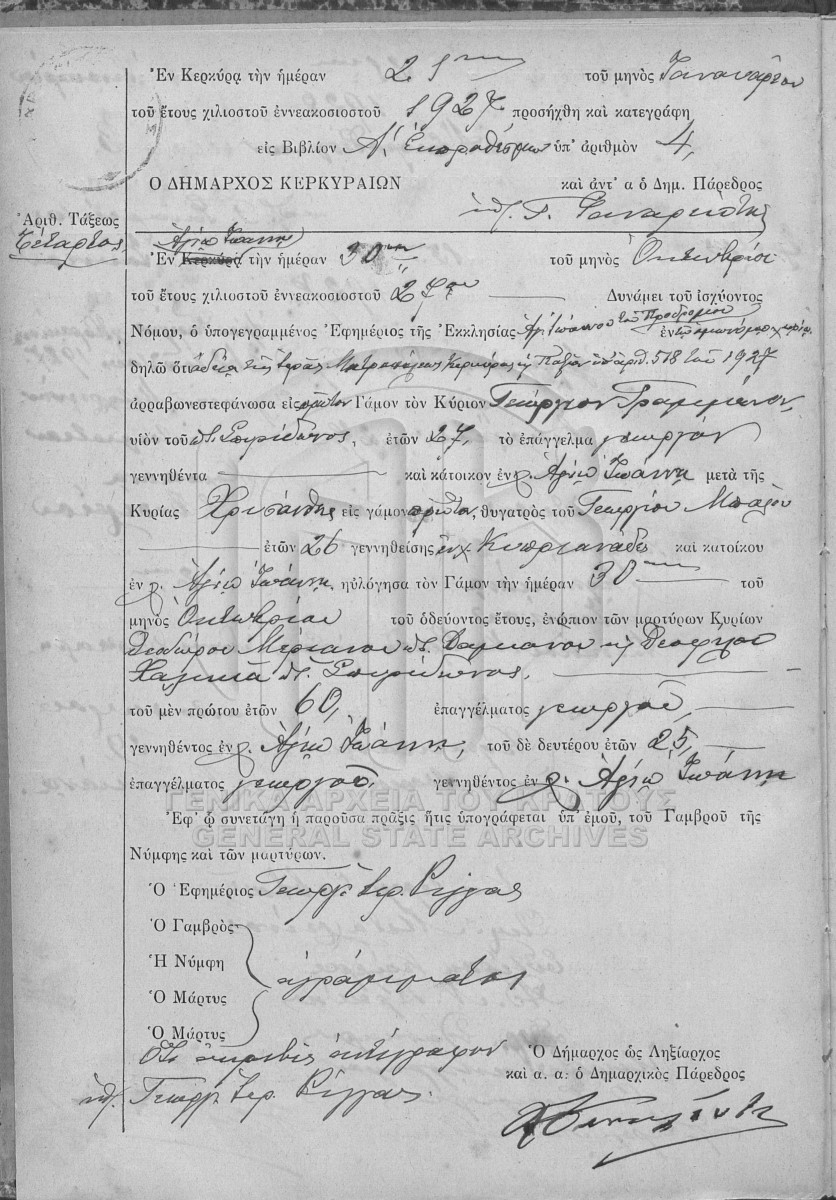 Ἐν Κερκύρᾳ τὴν ἡμέραν 21ην τοῦ μηνὸς Ἰανουαρίου
τοῦ ἔτους χιλιοστοῦ ἐννεακοσιοστοῦ 1927 προσήχθη καὶ κατεγράφη
εἰς Βιβλίον Α΄. Ἐκπροθέσμων ὑπ' ἀριθμὸν 4,
Ο ΔΗΜΑΡΧΟΣ ΚΕΡΚΥΡΑΙΩΝ καὶ ἀντ' α ὁ Δημ. Πάρεδρος
Ἀριθ. Τάξεως
Τέταρτος
Ἁγίῳ Ἰωάννῃ
Ἐν Κερκύρᾳ τὴν ἡμέραν 30ην τοῦ μηνὸς Ὀκτωβρίου
τοῦ ἔτους χιλιοστοῦ ἐννεακοσιοστοῦ 27ου Δυνάμει τοῦ ἰσχύοντος
Νόμου, ὁ ὑπογεγραμμένος Ἐφημέριος τῆς Ἐκκλησίας Ἁγ. Ἰωάννου τοῦ Προδρόμου ἐν τῷ ὁμωνύμῳ χωρίῳ
δηλῶ ὅτι ἀδείᾳ τῆς Ἱερᾶς Μητροπόλεως Κερκύρας κ Παξῶν ὑπ' ἀριθ. 518 τοῦ 1927
ἀρραβωνεστεφάνωσα εἰς πρῶτον Γάμον τὸν Κύριον Γεώργιον Γραμμένον,
υἱὸν τοῦ π. Σπυρίδωνος, ἐτῶν 27, τὸ ἐπάγγελμα γεωργὸν
γεννηθέντα καὶ κάτοικον ἐν χ. Ἁγίῳ Ἰωάννῃ μετὰ τῆς
Κυρίας Χρυσάνθης εἰς γάμον πρῶτον, θυγατρὸς τοῦ Γεωργίου Μπαλοῦ
ἐτῶν 26 γεννηθείσης ἐν χ Κυπριανάδες καὶ κατοίκου
ἐν χ. Ἁγίῳ Ἰωάννῃ, ηὐλόγησα τὸν Γάμον τὴν ἡμέραν 30ην τοῦ
μηνὸς Ὀκτωβρίου τοῦ ὁδεύοντος ἔτους, ἐνώπιον τῶν μαρτύρων Κυρίων
Θεοδώρου Μεριανοῦ π. Δαμιανοῦ κ Θεοφίλου
Χαλικιᾶ π. Σπυρίδωνος,
τοῦ μὲν πρώτου ἐτῶν 60, ἐπαγγέλματος γεωργοῦ,
γεννηθέντος ἐν χ. Ἁγίῳ Ἰωάννῃ, τοῦ δὲ δευτέρου ἐτῶν 25,
ἐπαγγέλματος γεωργοῦ, γεννηθέντος ἐν χ. Ἁγίῳ Ἰωάννῃ
ΓΕΝΙΚΑ ΑΡΧΕΙΑ ΤΟΥ ΚΡΑΤΟΥΣ
Ἐφ' ᾧ συνετάγη ἡ παροῦσα πρᾶξις ἥτις ὑπογράφεται ὑπ' ἐμοῦ, τοῦ Γαμβροῦ τῆς
GENERAL STATE ARCHIVES
Νύμφης καὶ τῶν μαρτύρων.
Ὁ Ἐφημέριος Γεώργ. Ἱερ. Ρίγγας
Ὁ Γαμβρὸς
Ἡ Νύμφη
ἀγράμματοι
Ὁ Μάρτυς
Ὁ Μάρτυς
Ὅτι ἀκριβὲς ἀντίγραφον
Ὁ Δήμαρχος ὡς Ληξίαρχος
καὶ α. α. ὁ Δημαρχικὸς Πάρεδρος
ὑπ. Γεώργ. Ἱερ. Ρίγγας.